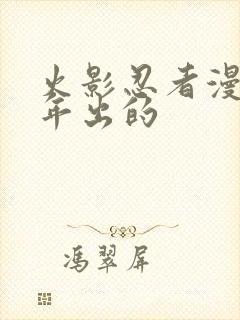 火影忍者漫
年出的
冯翠屏